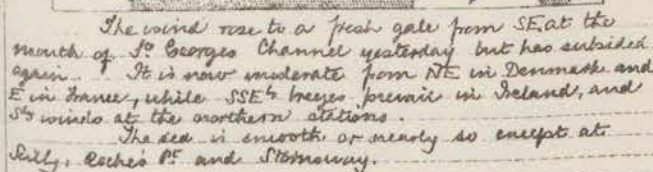 The wind rose to a fresh gale from SE at the
mouth of St Georges Channel yesterday but has subsided
again. It is now moderate from NE in Denmark and
E in France, while SSEly breezes prevail in Ireland, and
Sly winds at the northern stations.
The sea is smooth or nearly so except at
Scilly, Roche's Pt and Stornoway.